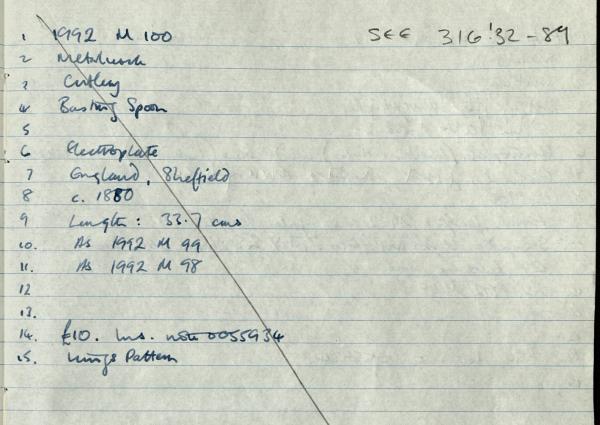 1 1992 M 100 SEE 316'32-89
2 Metalwork
3 Cutlery
4 Basting Spoon
5
6 Electroplate
7 England, Sheffield
8 c. 1880
9 Length: 33.7 cms
10. As 1992 M 99
11. As 1992 M 98
12
13.
14. £10. Ins. note 0055934
15. Kings Pattern